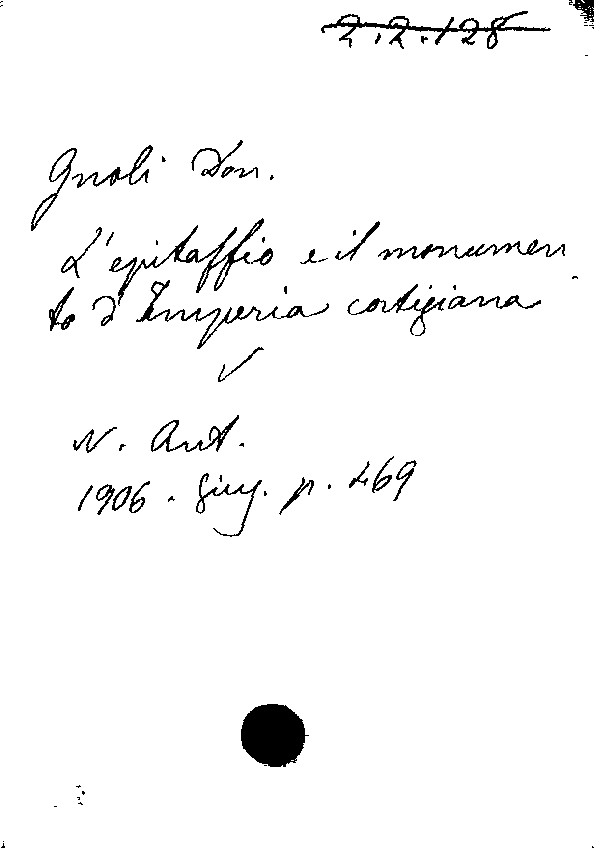 2.2.128
Gnoli Don.
L'epitaffio e il monumen
to d'Imperia cortigiana
N. Ant.
1906. Giug. p. 469